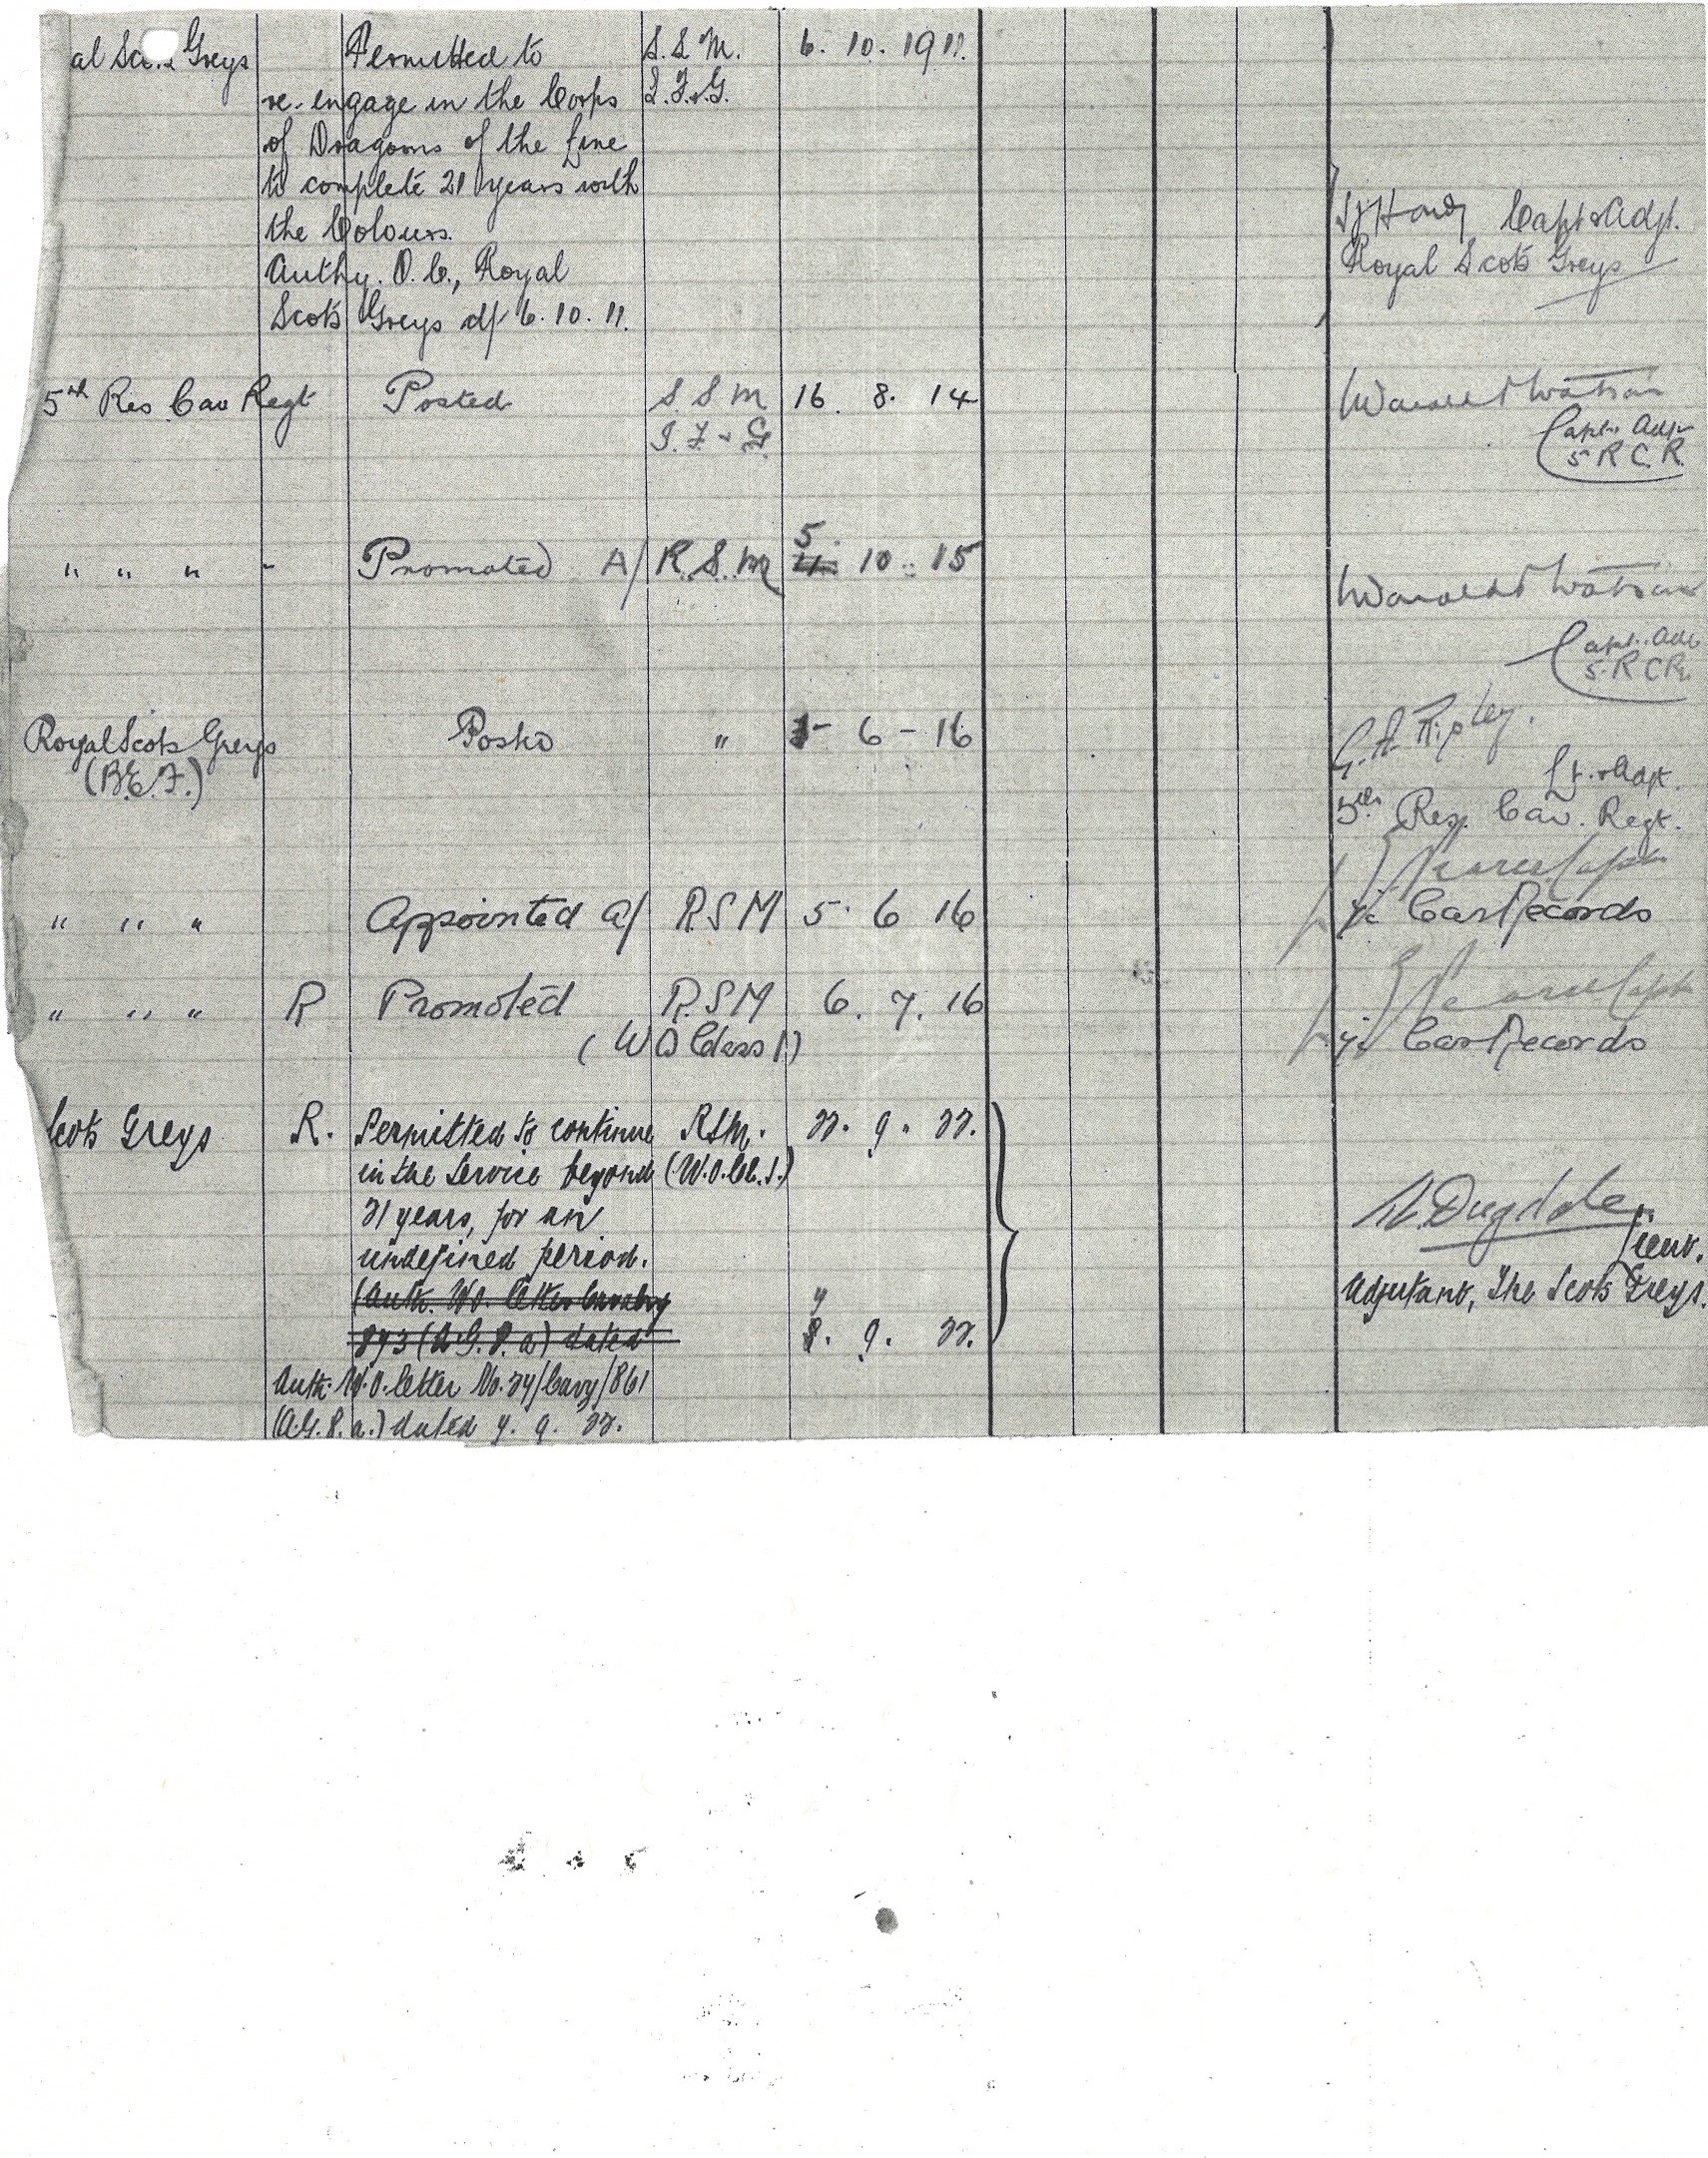 al Sco.. Greys Permitted to S.S.M. 6. 10. 1911.
re-engage in the Corps I.F.&G.
of Dragoons of the Line
to complete 21 years with
the Colours.
Authy. O.C., Royal
Scots Greys d/ 6.10.11.
Capt & Adjt.
Royal Scots Greys
5th Res Cav Regt Posted S.S.M 16. 8. 14
I.F & G. Watson
Capt. Adjt
5 R C. R.
" " " " Promoted A/ R.S.M 5. 10. 15
4. Watson
Capt. Adjt
5. R C R.
Royal Scots Greys Posted " 1 - 6 - 16 G.A. Ripley.
(B.E.F.) Lt. & Adjt.
5th Res. Cav. Regt.
Capt
" " " Appointed a/ RSM 5. 6 16 i/c Cav Records
Capt
" " " R Promoted R.S.M 6. 7. 16
(W O Class 1) i/c Cav Records
Scots Greys R. Permitted to continue RSM. 22. 9. 22.
in the service beyond (W.O.Cl.1.)
21 years, for an Dugdale
undefined period. Lieut.
(Auth. W.O. letter Cavalry 7 Adjutant, The Scots Greys.
893 (A.G.2.a) dated 8. 9. 22.
Auth: W.O. letter No. 24/Cavy/861
(A.G.2.a.) dated 7. 9. 22.